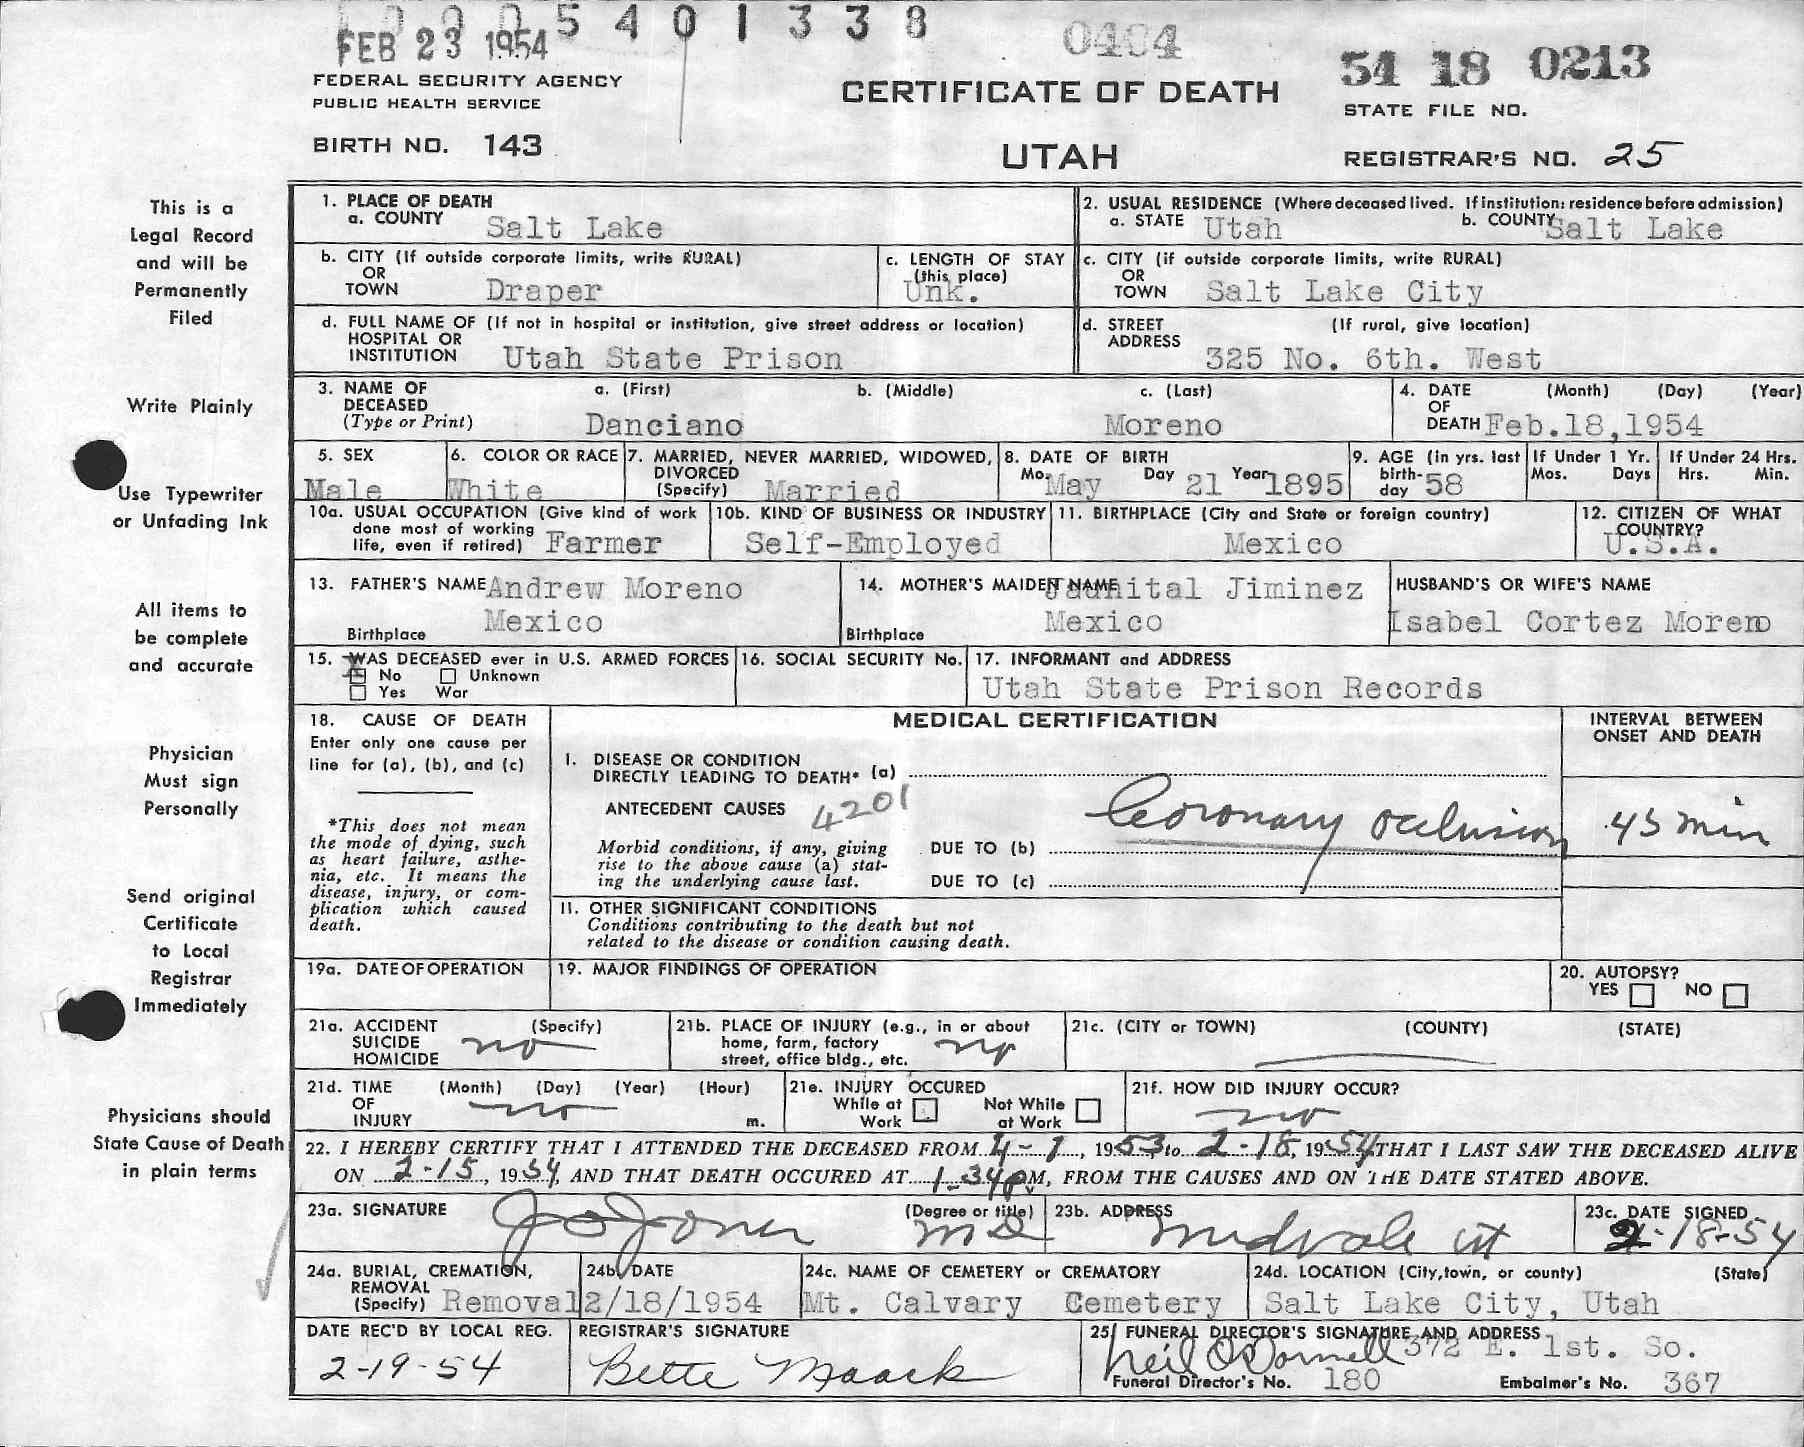 0005401338
FEB 23 1954
0404
54 18 0213
FEDERAL SECURITY AGENCY
PUBLIC HEALTH SERVICE
CERTIFICATE OF DEATH
STATE FILE NO.
BIRTH NO. 143
UTAH
REGISTRAR'S NO. 25
This is a
Legal Record
and will be
Permanently
Filed
Write Plainly
Use Typewriter
or Unfading Ink
All items to
be complete
and accurate
Physician
Must sign
Personally
Send original
Certificate
to Local
Registrar
Immediately
Physicians should
State Cause of Death
in plain terms
1. PLACE OF DEATH
a. COUNTY Salt Lake
2. USUAL RESIDENCE (Where deceased lived. If institution: residence before admission)
a. STATE Utah b. COUNTY Salt Lake
b. CITY (If outside corporate limits, write RURAL)
OR
TOWN Draper
c. LENGTH OF STAY
(this place)
Unk.
c. CITY (if outside corporate limits, write RURAL)
OR
TOWN Salt Lake City
d. FULL NAME OF (If not in hospital or institution, give street address or location)
HOSPITAL OR
INSTITUTION Utah State Prison
d. STREET (If rural, give location)
ADDRESS
325 No. 6th. West
3. NAME OF a. (First) b. (Middle) c. (Last)
DECEASED
(Type or Print) Danciano Moreno
4. DATE (Month) (Day) (Year)
OF
DEATH Feb.18,1954
5. SEX
Male
6. COLOR OR RACE
White
7. MARRIED, NEVER MARRIED, WIDOWED,
DIVORCED
(Specify) Married
8. DATE OF BIRTH
Mo. May Day 21 Year 1895
9. AGE (in yrs. last
birth-
day 58
If Under 1 Yr.
Mos. Days
If Under 24 Hrs.
Hrs. Min.
10a. USUAL OCCUPATION (Give kind of work
done most of working
life, even if retired) Farmer
10b. KIND OF BUSINESS OR INDUSTRY
Self-Employed
11. BIRTHPLACE (City and State or foreign country)
Mexico
12. CITIZEN OF WHAT
COUNTRY?
U.S.A.
13. FATHER'S NAME Andrew Moreno
Birthplace Mexico
14. MOTHER'S MAIDEN NAME Juanital Jiminez
Birthplace Mexico
HUSBAND'S OR WIFE'S NAME
Isabel Cortez Moreno
15. WAS DECEASED ever in U.S. ARMED FORCES
X No Unknown
Yes War
16. SOCIAL SECURITY No.
17. INFORMANT and ADDRESS
Utah State Prison Records
18. CAUSE OF DEATH
Enter only one cause per
line for (a), (b), and (c)
*This does not mean
the mode of dying, such
as heart failure, asthe-
nia, etc. It means the
disease, injury, or com-
plication which caused
death.
MEDICAL CERTIFICATION
INTERVAL BETWEEN
ONSET AND DEATH
I. DISEASE OR CONDITION
DIRECTLY LEADING TO DEATH* (a)
ANTECEDENT CAUSES 4201
Coronary occlusion 45 min
Morbid conditions, if any, giving
rise to the above cause (a) stat-
ing the underlying cause last.
DUE TO (b)
DUE TO (c)
II. OTHER SIGNIFICANT CONDITIONS
Conditions contributing to the death but not
related to the disease or condition causing death.
19a. DATE OF OPERATION
19. MAJOR FINDINGS OF OPERATION
20. AUTOPSY?
YES NO
21a. ACCIDENT (Specify)
SUICIDE
HOMICIDE no
21b. PLACE OF INJURY (e.g., in or about
home, farm, factory
street, office bldg., etc. no
21c. (CITY or TOWN) (COUNTY) (STATE)
21d. TIME (Month) (Day) (Year) (Hour)
OF
INJURY no m.
21e. INJURY OCCURED
While at Not While
Work at Work
21f. HOW DID INJURY OCCUR?
no
22. I HEREBY CERTIFY THAT I ATTENDED THE DECEASED FROM 4-1, 1953 to 2-18, 1954 THAT I LAST SAW THE DECEASED ALIVE
ON 2-15, 1954, AND THAT DEATH OCCURED AT 1-34 PM, FROM THE CAUSES AND ON THE DATE STATED ABOVE.
23a. SIGNATURE (Degree or title)
J O Jones MD
23b. ADDRESS
Midvale Ut
23c. DATE SIGNED
2-18-54
24a. BURIAL, CREMATION,
REMOVAL
(Specify) Removal
24b. DATE
2/18/1954
24c. NAME OF CEMETERY or CREMATORY
Mt. Calvary Cemetery
24d. LOCATION (City, town, or county) (State)
Salt Lake City, Utah
DATE REC'D BY LOCAL REG.
2-19-54
REGISTRAR'S SIGNATURE
Bette Maack
25. FUNERAL DIRECTOR'S SIGNATURE AND ADDRESS
Neil O'Donnell 372 E. 1st. So.
Funeral Director's No. 180 Embalmer's No. 367